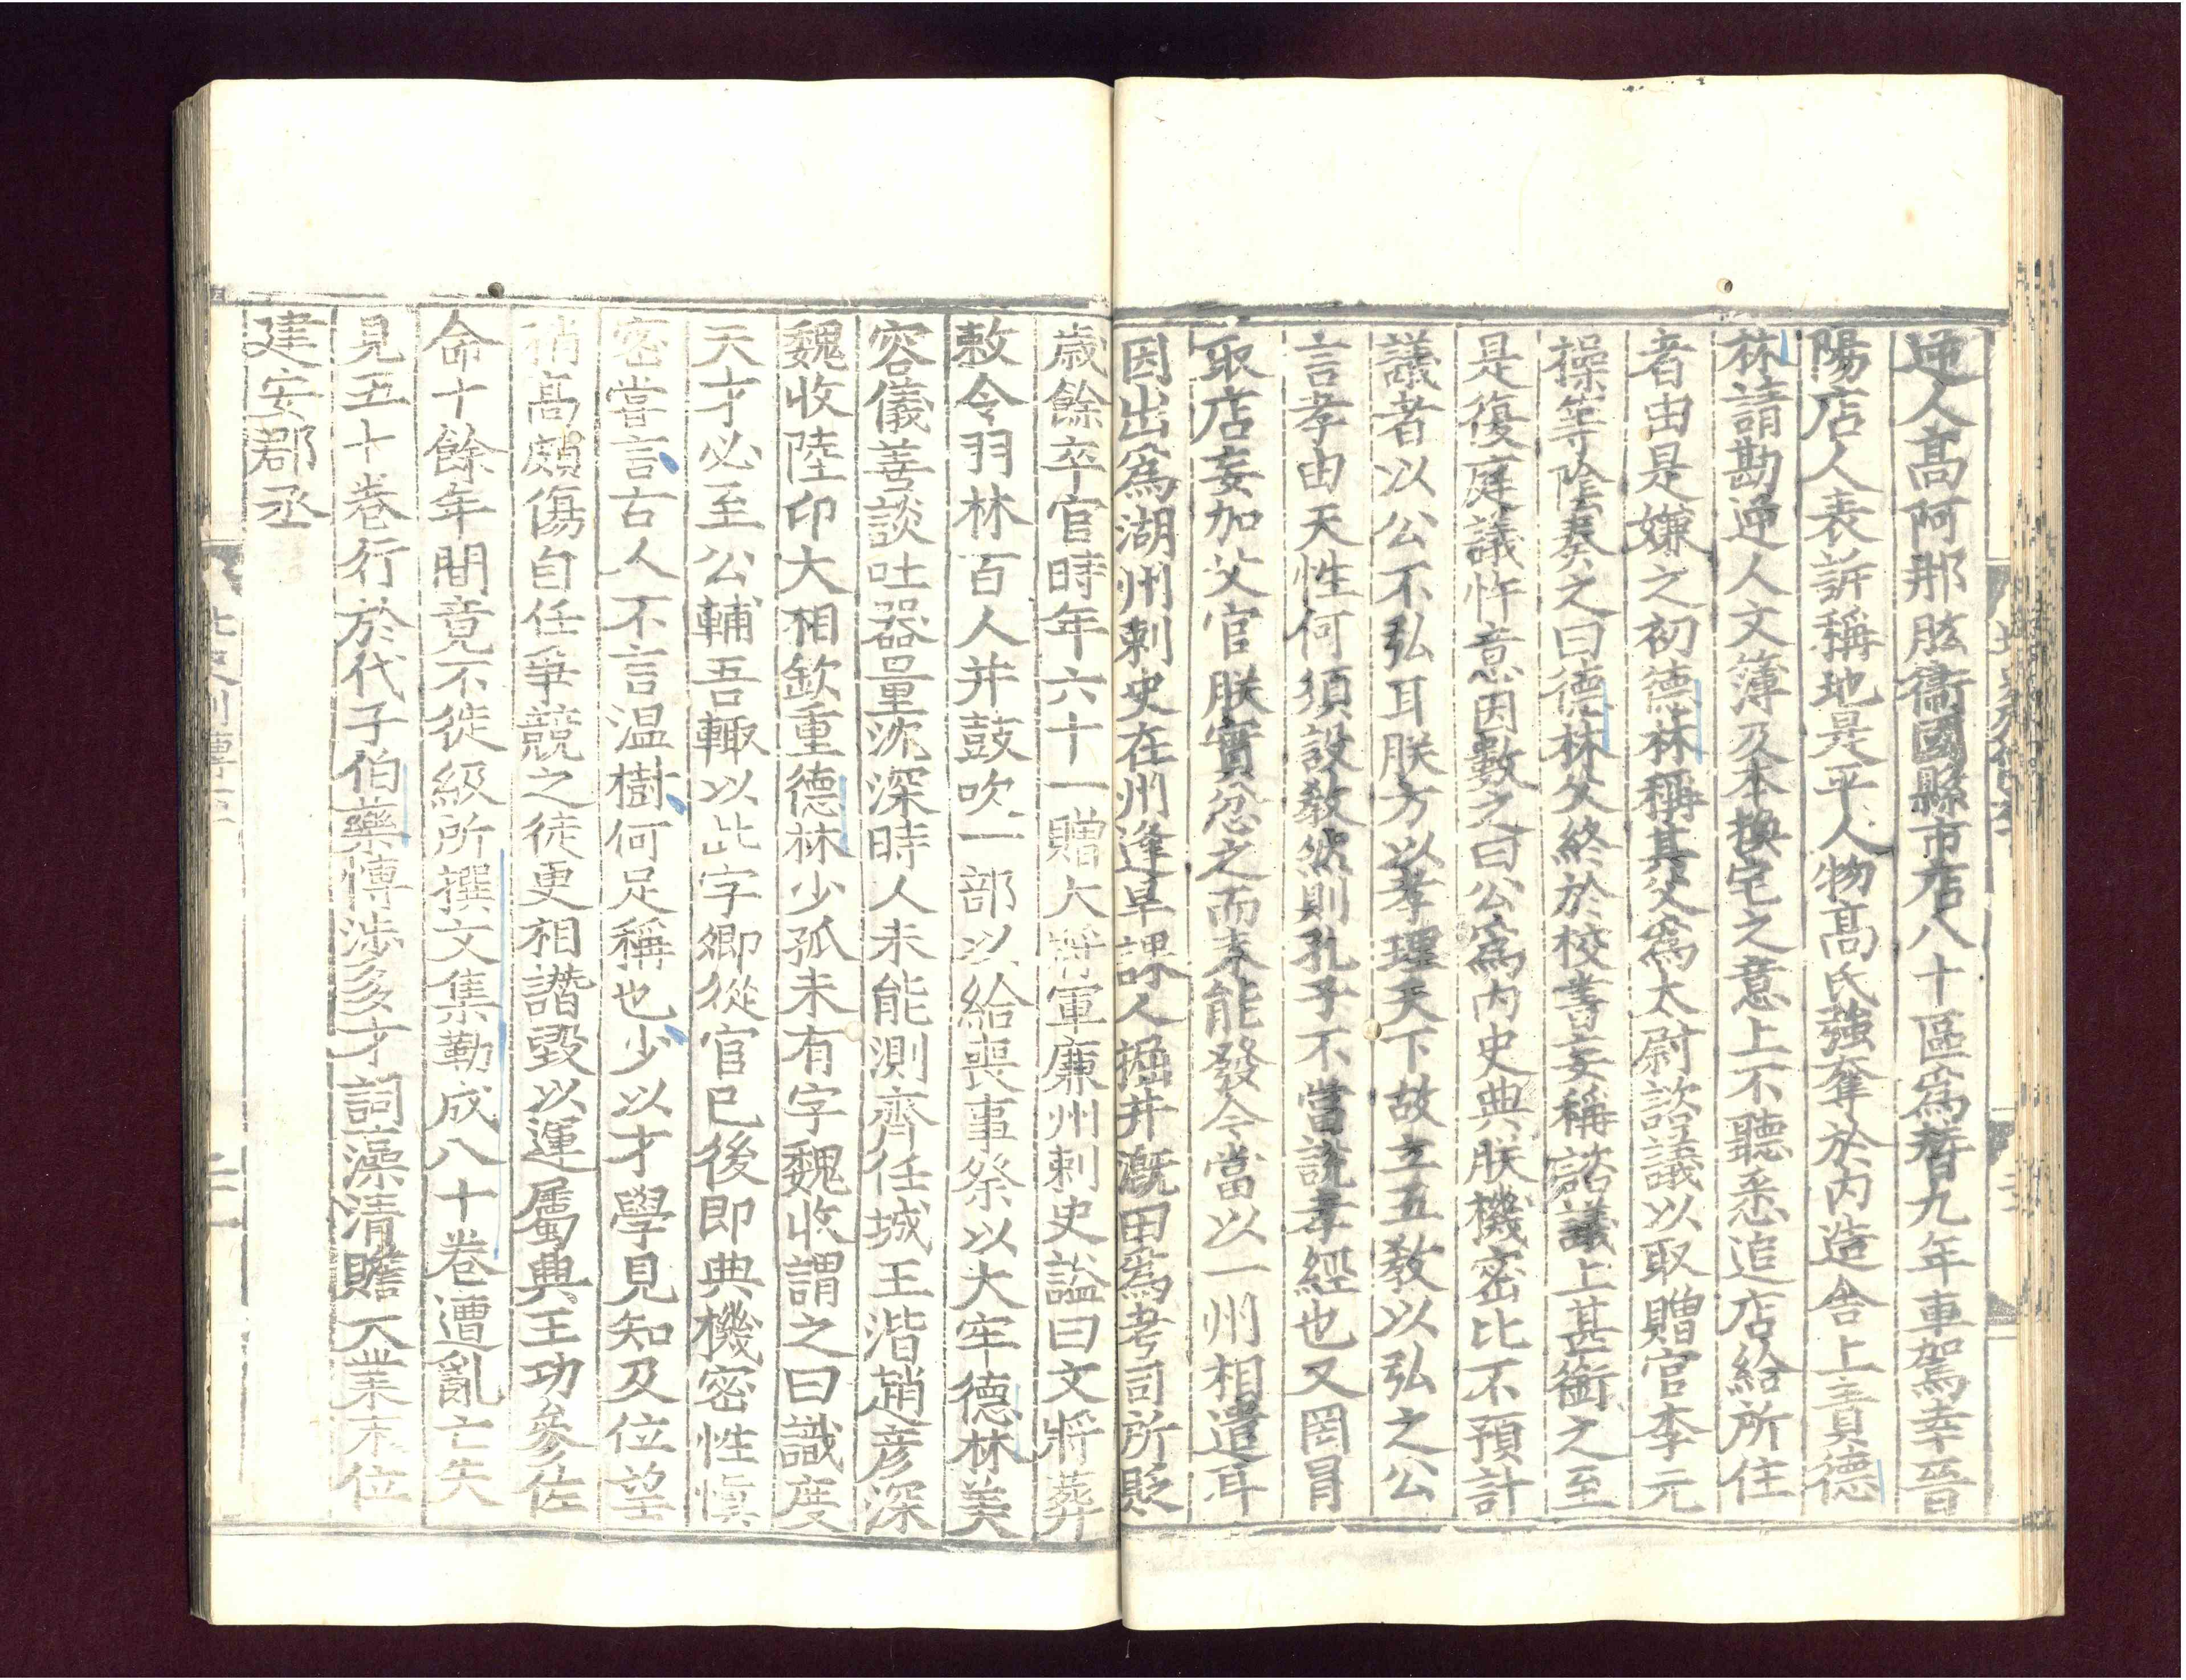 逆人高阿那肱衞國縣市店八十區爲替九年車駕幸晉
陽店人表訴稱地是平人物高氏強奪於内造舎上責德
林請勘逆人文簿及本換宅之意上不聽悉追店給所住
者由是嫌之初德林稱其父爲太尉諮議以取贈官李元
操等陰奏之曰德林父終於校書妄稱諮議上甚銜之至
是復庭議忤意因數之曰公爲内史典朕機密比不預計
議者以公不弘耳朕方以孝理天下故立五敎以弘之公
言孝由天性何須設敎然則孔子不當說孝經也又罔冒
取店妄加父官朕實忿之而未能發今當以一州相遣耳
因出爲湖州刺史在州逢旱課人掘井漑田爲考司所貶
歲餘卒官時年六十一贈大將軍廉州刺史謚曰文將葬
敕令羽林百人并鼓吹一部以給喪事祭以大牢德林美
容儀善談吐器量沈深時人未能測齊任城王湝趙彦深
魏收陸卬大相欽重德林少孤未有字魏收謂之曰識度
天才必至公輔吾輙以此字卿從官已後即典機密性愼
密嘗言古人不言温樹何足稱也少以才學見知及位望
稍高頗傷自任爭競之徒更相譖毀以運屬典王功參佐
命十餘年間竟不徙級所撰文集勒成八十卷遭亂亡失
見五十卷行於代子伯藥博涉多才詞藻清贍大業末位
建安郡丞
北史列傳六十
二十一